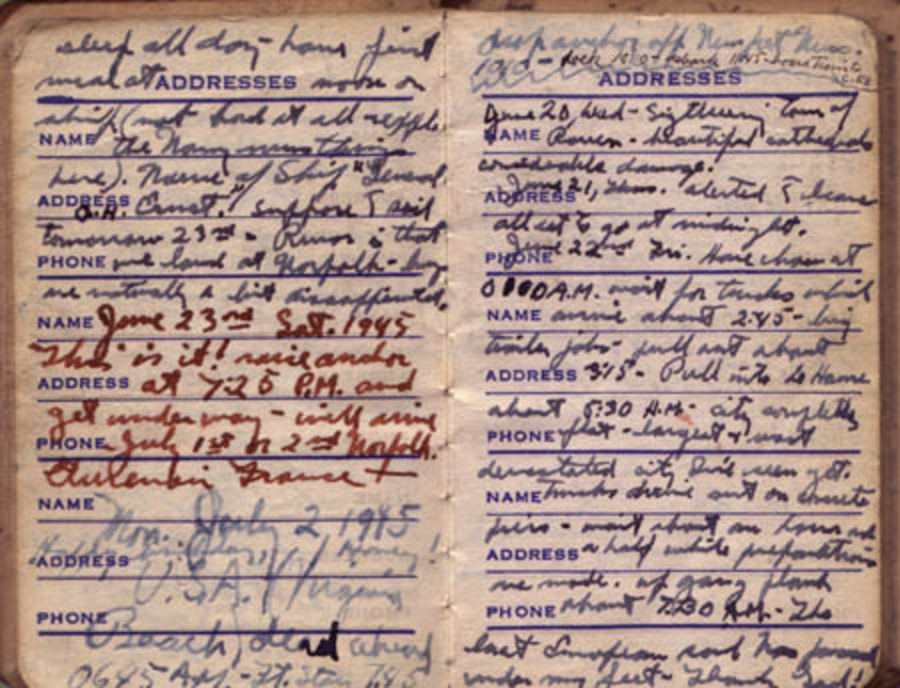 sleep all day - have first
meal at ADDRESSES noon on
ship (not bad at all -
NAME the Navy
here). Name of Ship "General
ADDRESS O.H. Ernst." suppose I sail
tomorrow 23rd - Rumor is that
PHONE we land at Norfolk -
are naturally a bit dissappointed.
NAME June 23rd Sat. 1945
"This" is it! raise anchor
ADDRESS at 7:25 P.M. and
get under way - will arrive
PHONE July 1st or 2nd Norfolk.
France
NAME
Mon. July 2 1945
ADDRESS Honey!
U.S.A. (Virginia
PHONE
Beach) dead ahead
0645 A.M. - Ft. 7:45
drop anchor off Newport News.
ADDRESSES
June 20, Wed - Sightseeing tour of
NAME Rouen - beautiful cathedrals
considerable damage.
ADDRESS June 21, Thurs. alerted to leave
all set to go at midnight.
PHONE June 22nd Fri. Have chow at
A.M. wait for trucks which
NAME arrive about 2:45 - big
trailer jobs - pull out about
ADDRESS 3:15 - Pull into Le Havre
about 5:30 A.M. - city completely
PHONE flat - largest & most
devastated city I've seen yet.
NAME Trucks drive out on concrete
piers - wait about an hour and
ADDRESS a half while preparations
are made. up gang plank
PHONE about 7:30 A.M. - The
last European soil has passed
under my feet - Thank God!